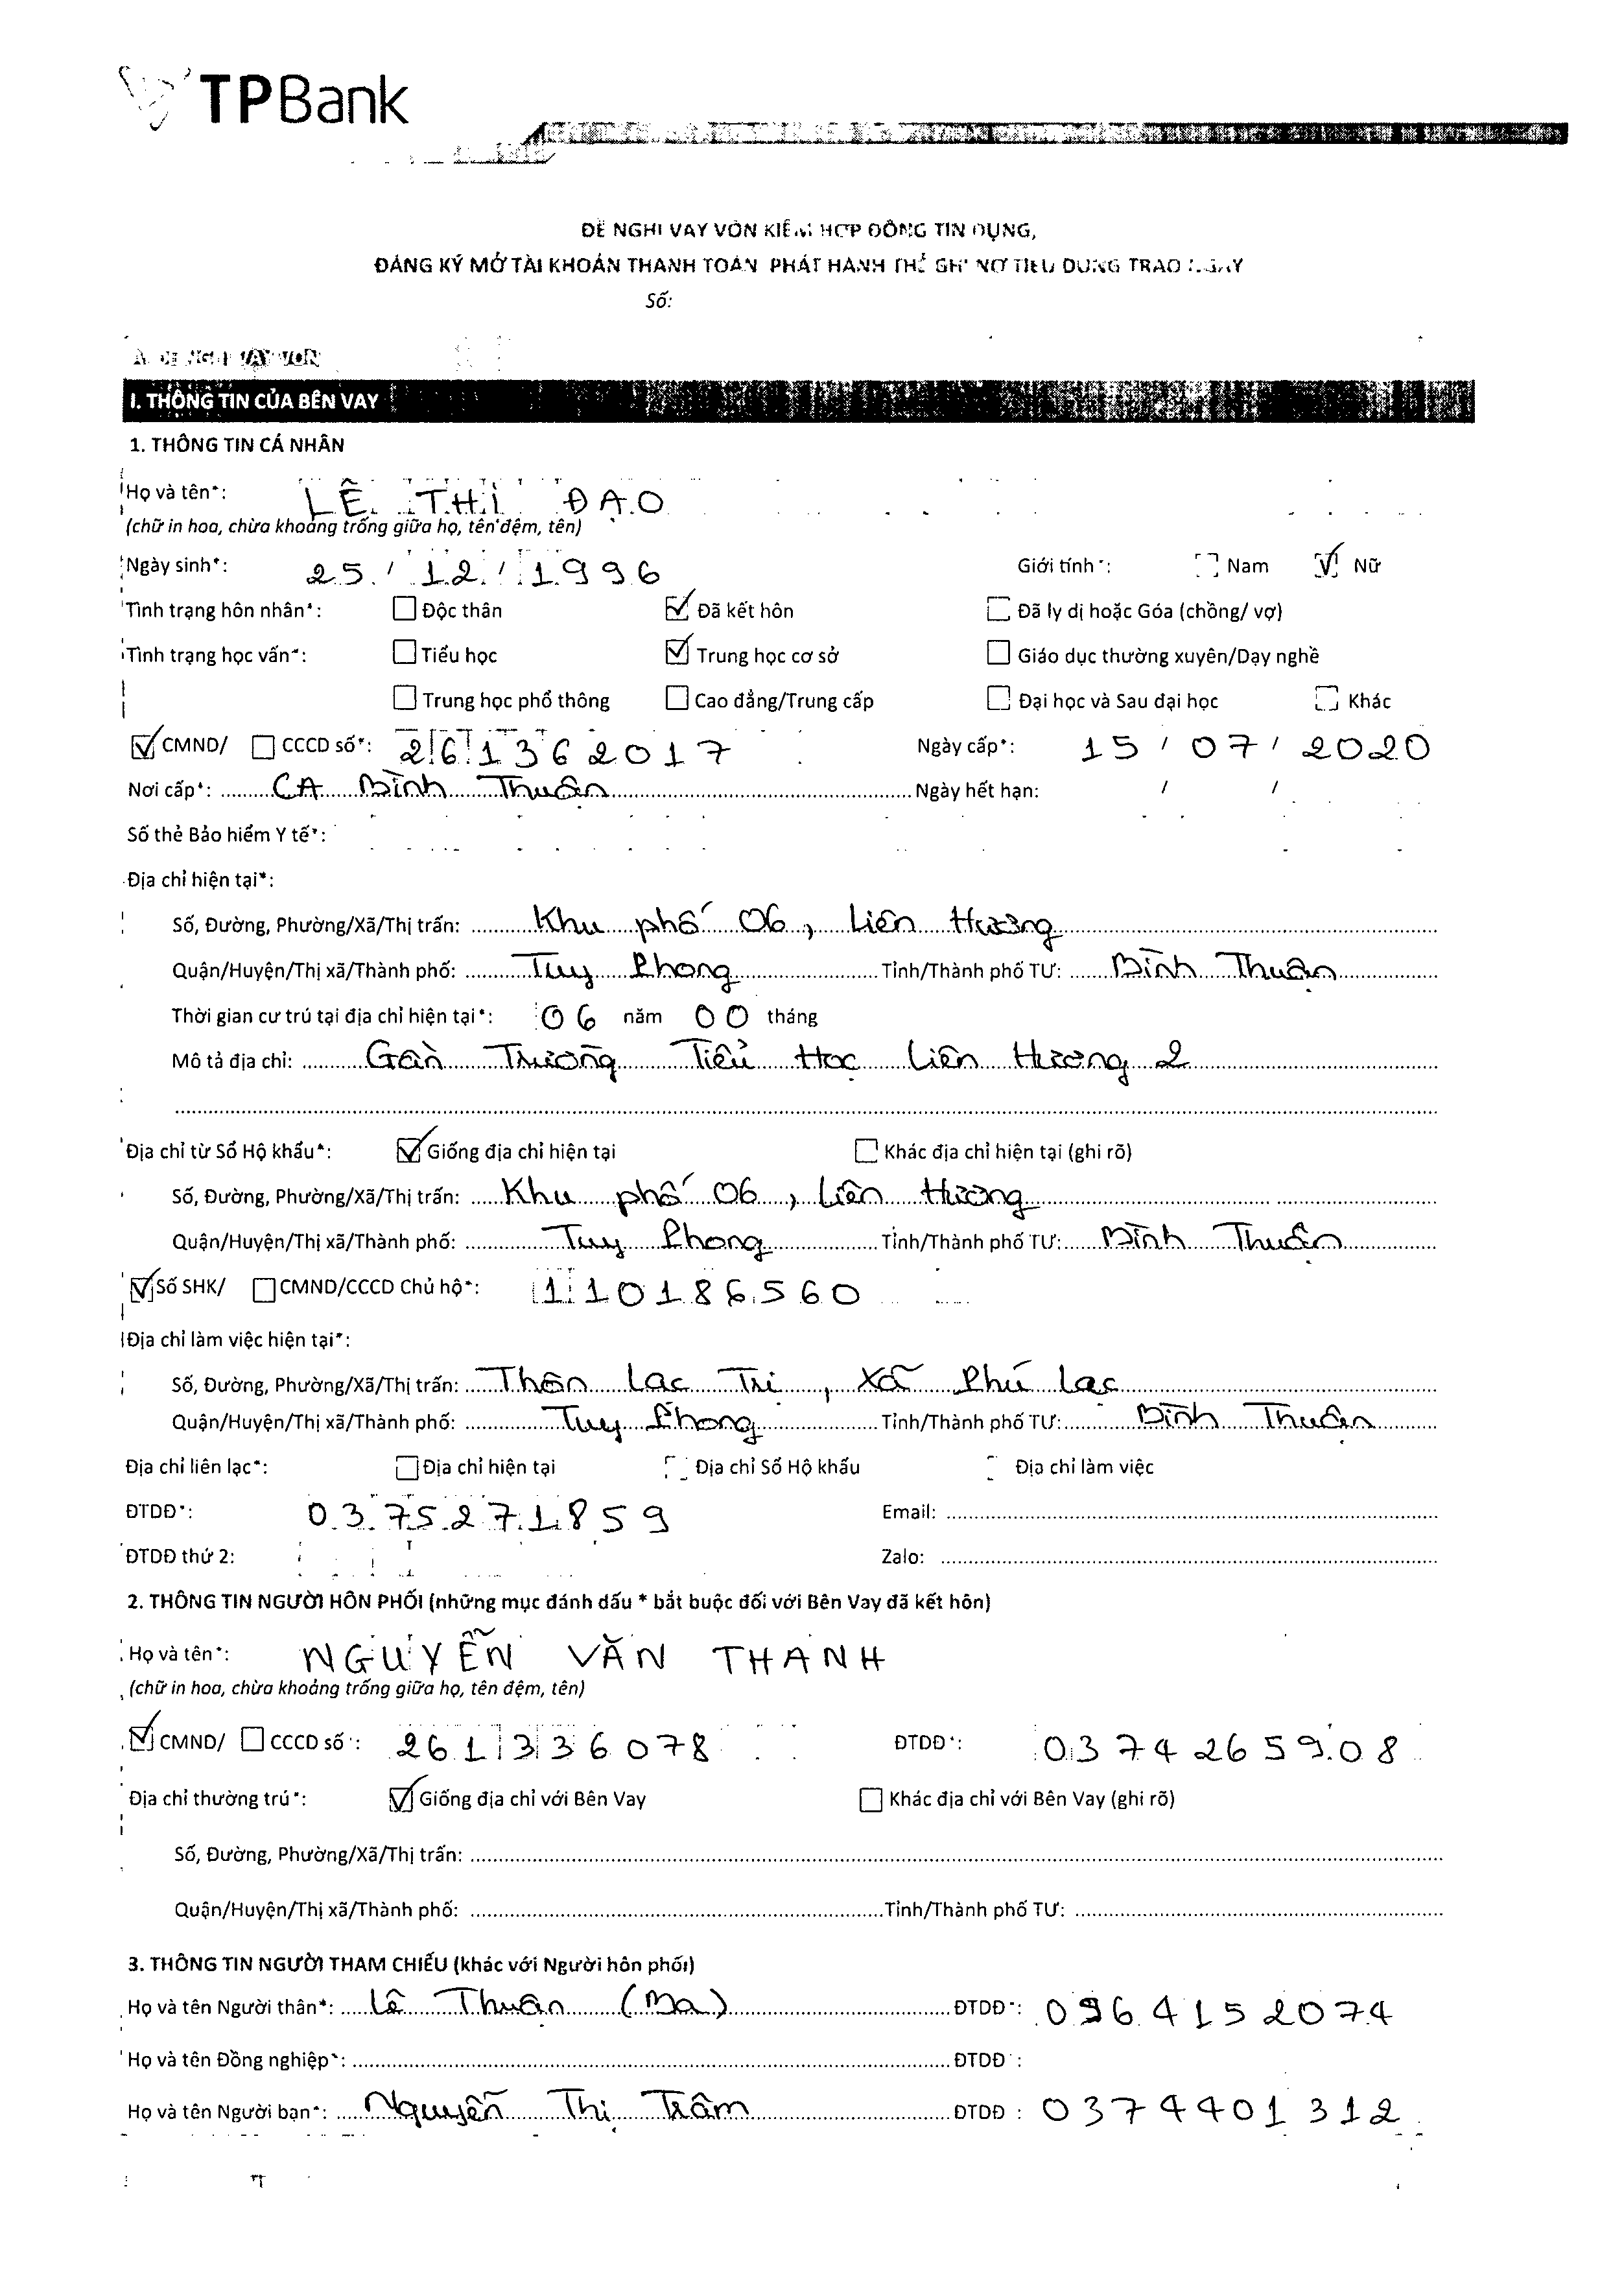 TPBank
ĐỀ NGHỊ VAY VỐN KIÊM HỢP ĐỒNG TÍN DỤNG,
ĐĂNG KÝ MỞ TÀI KHOẢN THANH TOÁN PHÁT HÀNH THẺ GHI NỢ TIÊU DÙNG TRAO NGAY
Số:
VAY VỐN
I. THÔNG TIN CỦA BÊN VAY
1. THÔNG TIN CÁ NHÂN
Họ và tên*: LÊ THỊ ĐẠO
(chữ in hoa, chừa khoảng trống giữa họ, tên đệm, tên)
Ngày sinh*: 25 / 12 / 1996 Giới tính*: Nam Nữ
Tình trạng hôn nhân*: Độc thân Đã kết hôn Đã ly dị hoặc Góa (chồng/ vợ)
Tình trạng học vấn*: Tiểu học Trung học cơ sở Giáo dục thường xuyên/Dạy nghề
Trung học phổ thông Cao đẳng/Trung cấp Đại học và Sau đại học Khác
CMND/ CCCD số*: 261362017 Ngày cấp*: 15 / 07 / 2020
Nơi cấp*: CA Bình Thuận Ngày hết hạn: / /
Số thẻ Bảo hiểm Y tế*:
Địa chỉ hiện tại*:
Số, Đường, Phường/Xã/Thị trấn: Khu phố 06, Liên Hương
Quận/Huyện/Thị xã/Thành phố: Tuy Phong Tỉnh/Thành phố TƯ: Bình Thuận
Thời gian cư trú tại địa chỉ hiện tại*: 06 năm 00 tháng
Mô tả địa chỉ: Gần Trường Tiểu Học Liên Hương 2
Địa chỉ từ Sổ Hộ khẩu*: Giống địa chỉ hiện tại Khác địa chỉ hiện tại (ghi rõ)
Số, Đường, Phường/Xã/Thị trấn: Khu phố 06, Liên Hương
Quận/Huyện/Thị xã/Thành phố: Tuy Phong Tỉnh/Thành phố TƯ: Bình Thuận
Số SHK/ CMND/CCCD Chủ hộ*: 110186560
Địa chỉ làm việc hiện tại*:
Số, Đường, Phường/Xã/Thị trấn: Thôn Lạc Trị, Xã Phú Lạc
Quận/Huyện/Thị xã/Thành phố: Tuy Phong Tỉnh/Thành phố TƯ: Bình Thuận
Địa chỉ liên lạc*: Địa chỉ hiện tại Địa chỉ Sổ Hộ khẩu Địa chỉ làm việc
ĐTDĐ*: 0375271859 Email:
ĐTDĐ thứ 2: Zalo:
2. THÔNG TIN NGƯỜI HÔN PHỐI (những mục đánh dấu * bắt buộc đối với Bên Vay đã kết hôn)
Họ và tên*: NGUYỄN VĂN THANH
(chữ in hoa, chừa khoảng trống giữa họ, tên đệm, tên)
CMND/ CCCD số*: 261336078 ĐTDĐ*: 0374265908
Địa chỉ thường trú*: Giống địa chỉ với Bên Vay Khác địa chỉ với Bên Vay (ghi rõ)
Số, Đường, Phường/Xã/Thị trấn:
Quận/Huyện/Thị xã/Thành phố: Tỉnh/Thành phố TƯ:
3. THÔNG TIN NGƯỜI THAM CHIẾU (khác với Người hôn phối)
Họ và tên Người thân*: Lê Thuận (Ba) ĐTDĐ*: 0964152074
Họ và tên Đồng nghiệp*: ĐTDĐ*:
Họ và tên Người bạn*: Nguyễn Thị Trâm ĐTDĐ: 0374401312